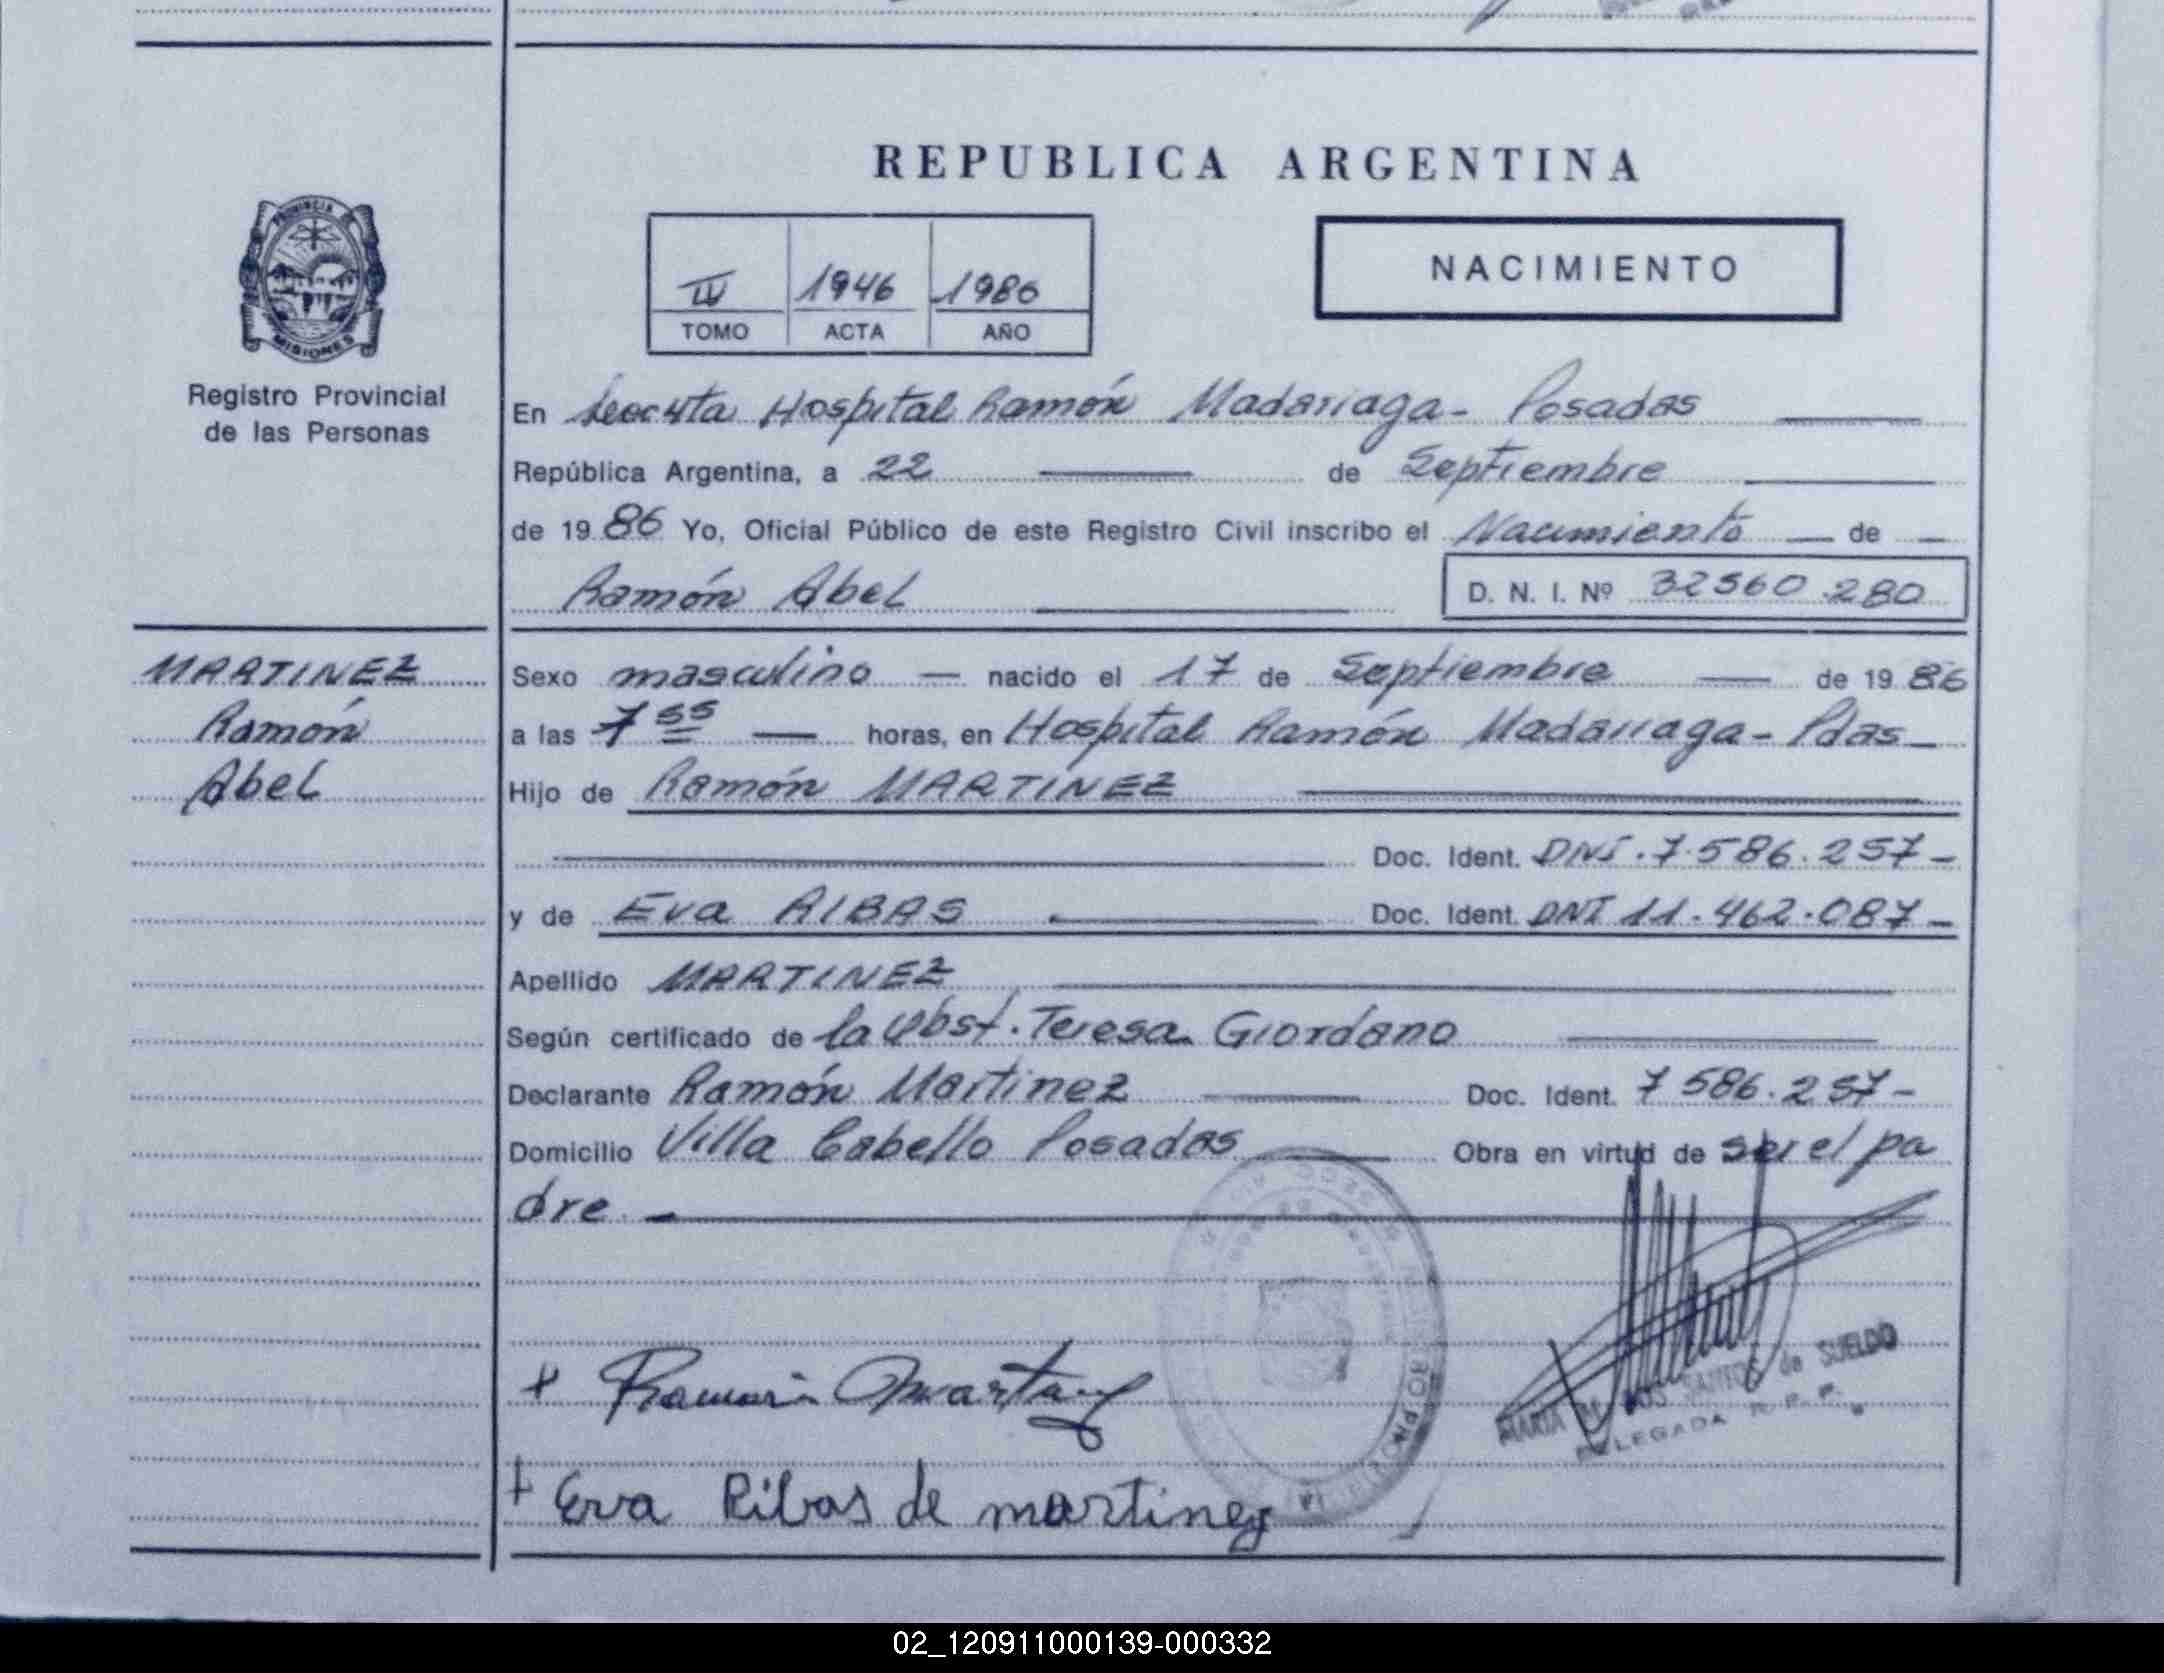 REPUBLICA ARGENTINA
PROVINCIA DE
MISIONES
Registro Provincial
de las Personas
IV 1946 1986
TOMO ACTA AÑO
NACIMIENTO
En Hospital Ramón Madariaga - Posadas
República Argentina, a 22 de Septiembre
de 1986 Yo, Oficial Público de este Registro Civil inscribo el Nacimiento de
Ramón Abel D. N. I. Nº 32560.280
MARTINEZ
Ramón
Abel
Sexo masculino nacido el 17 de Septiembre de 1986
a las 7 55 horas, en Hospital Ramón Madariaga - Pdas -
Hijo de Ramón MARTINEZ
Doc. Ident. DNI. 7.586.257 -
y de Eva RIBAS Doc. Ident. DNI 11.462.087 -
Apellido MARTINEZ
Según certificado de la Obst. Teresa Giordano
Declarante Ramón Martinez Doc. Ident. 7 586.257 -
Domicilio Villa Cabello Posadas Obra en virtud de ser el pa
dre. -
MARIA DOS SANTOS de SUELDO
DELEGADA R. P. P.
+ Ramon Martinez
+ Eva Ribas de martinez
02_120911000139-000332